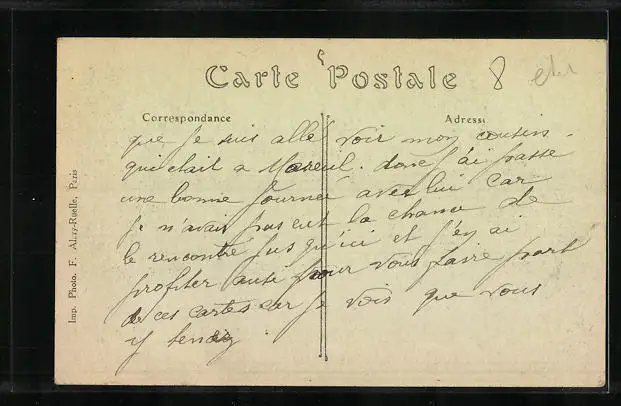 Carte Postale 8
Correspondance
Adresse
que je suis allé voir mon cousin
qui etait a Mareuil. donc j'ai passe
une bonne journeé avec lui car
je n'avais pas eut la chance de
le rencontre jusqu'ici et j'en ai
profiter ausi pour vous faire part
de ces cartes car je vois que vous
y tenez
Imp. Photo. F. Ruelle, Paris